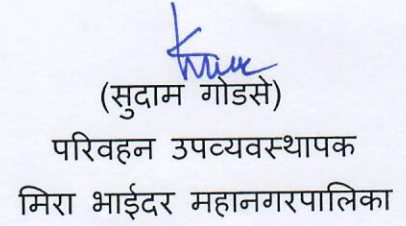 (सुदाम गोडसे)
परिवहन उपव्यवस्थापक
मिरा भाईंदर महानगरपालिका